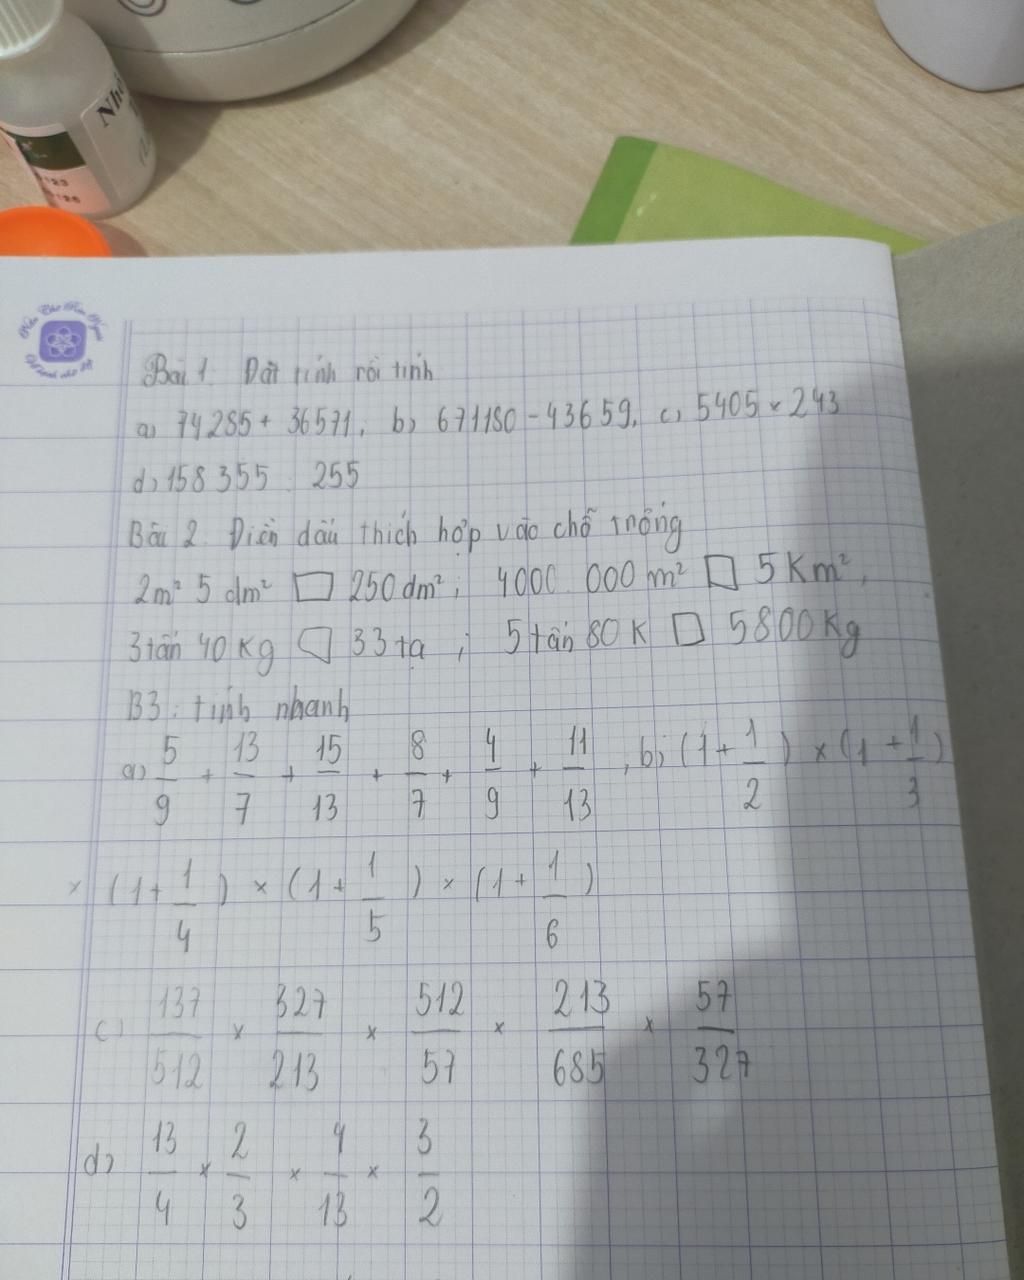 Nhỏ
Bài 1. Đặt tính rồi tính
a) 74285 + 36571; b) 671180 - 43659. c) 5405 x 243
d) 158355 : 255
Bài 2. Điền dấu thích hợp vào chỗ trống
2m² 5 dm² □ 250 dm²; 4000 000 m² □ 5 Km²,
3 tấn 40 Kg □ 33 tạ ; 5 tấn 80 K □ 5800 Kg
B3: tính nhanh
a) 5/9 + 13/7 + 15/13 + 8/7 + 4/9 + 11/13, b) (1 + 1/2) x (1 + 1/3)
x (1 + 1/4) x (1 + 1/5) x (1 + 1/6)
c) 137/512 x 327/213 x 512/57 x 213/685 x 57/327
d) 13/4 x 2/3 x 4/13 x 3/2